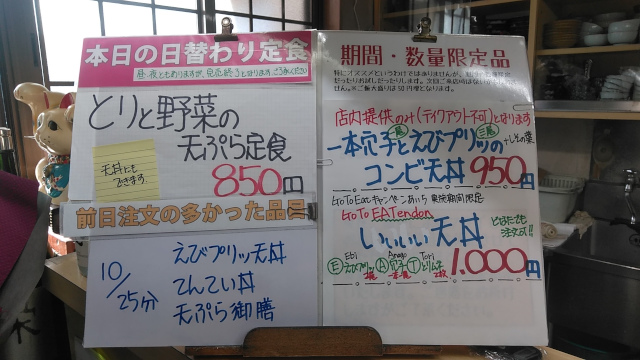 本日の日替わり定食
とりと野菜の
天ぷら定食
850円
天丼にも
できます
前日注文の多かった品
10/25分
えびプリッ天丼
てんてい丼
天ぷら御膳
期間・数量限定品
店内提供のみ(テイクアウト不可)となります
一本穴子とえびプリッの
コンビ天丼 950円
GoToEatキャンペーンあいち 実施期間限定
GoTo EATendon
いいいい天丼
どなたでも
注文可!!
Ebi Anago Tori
Ⓔえびプリッ Ⓐ穴子 Ⓣとりムネ
1.000円